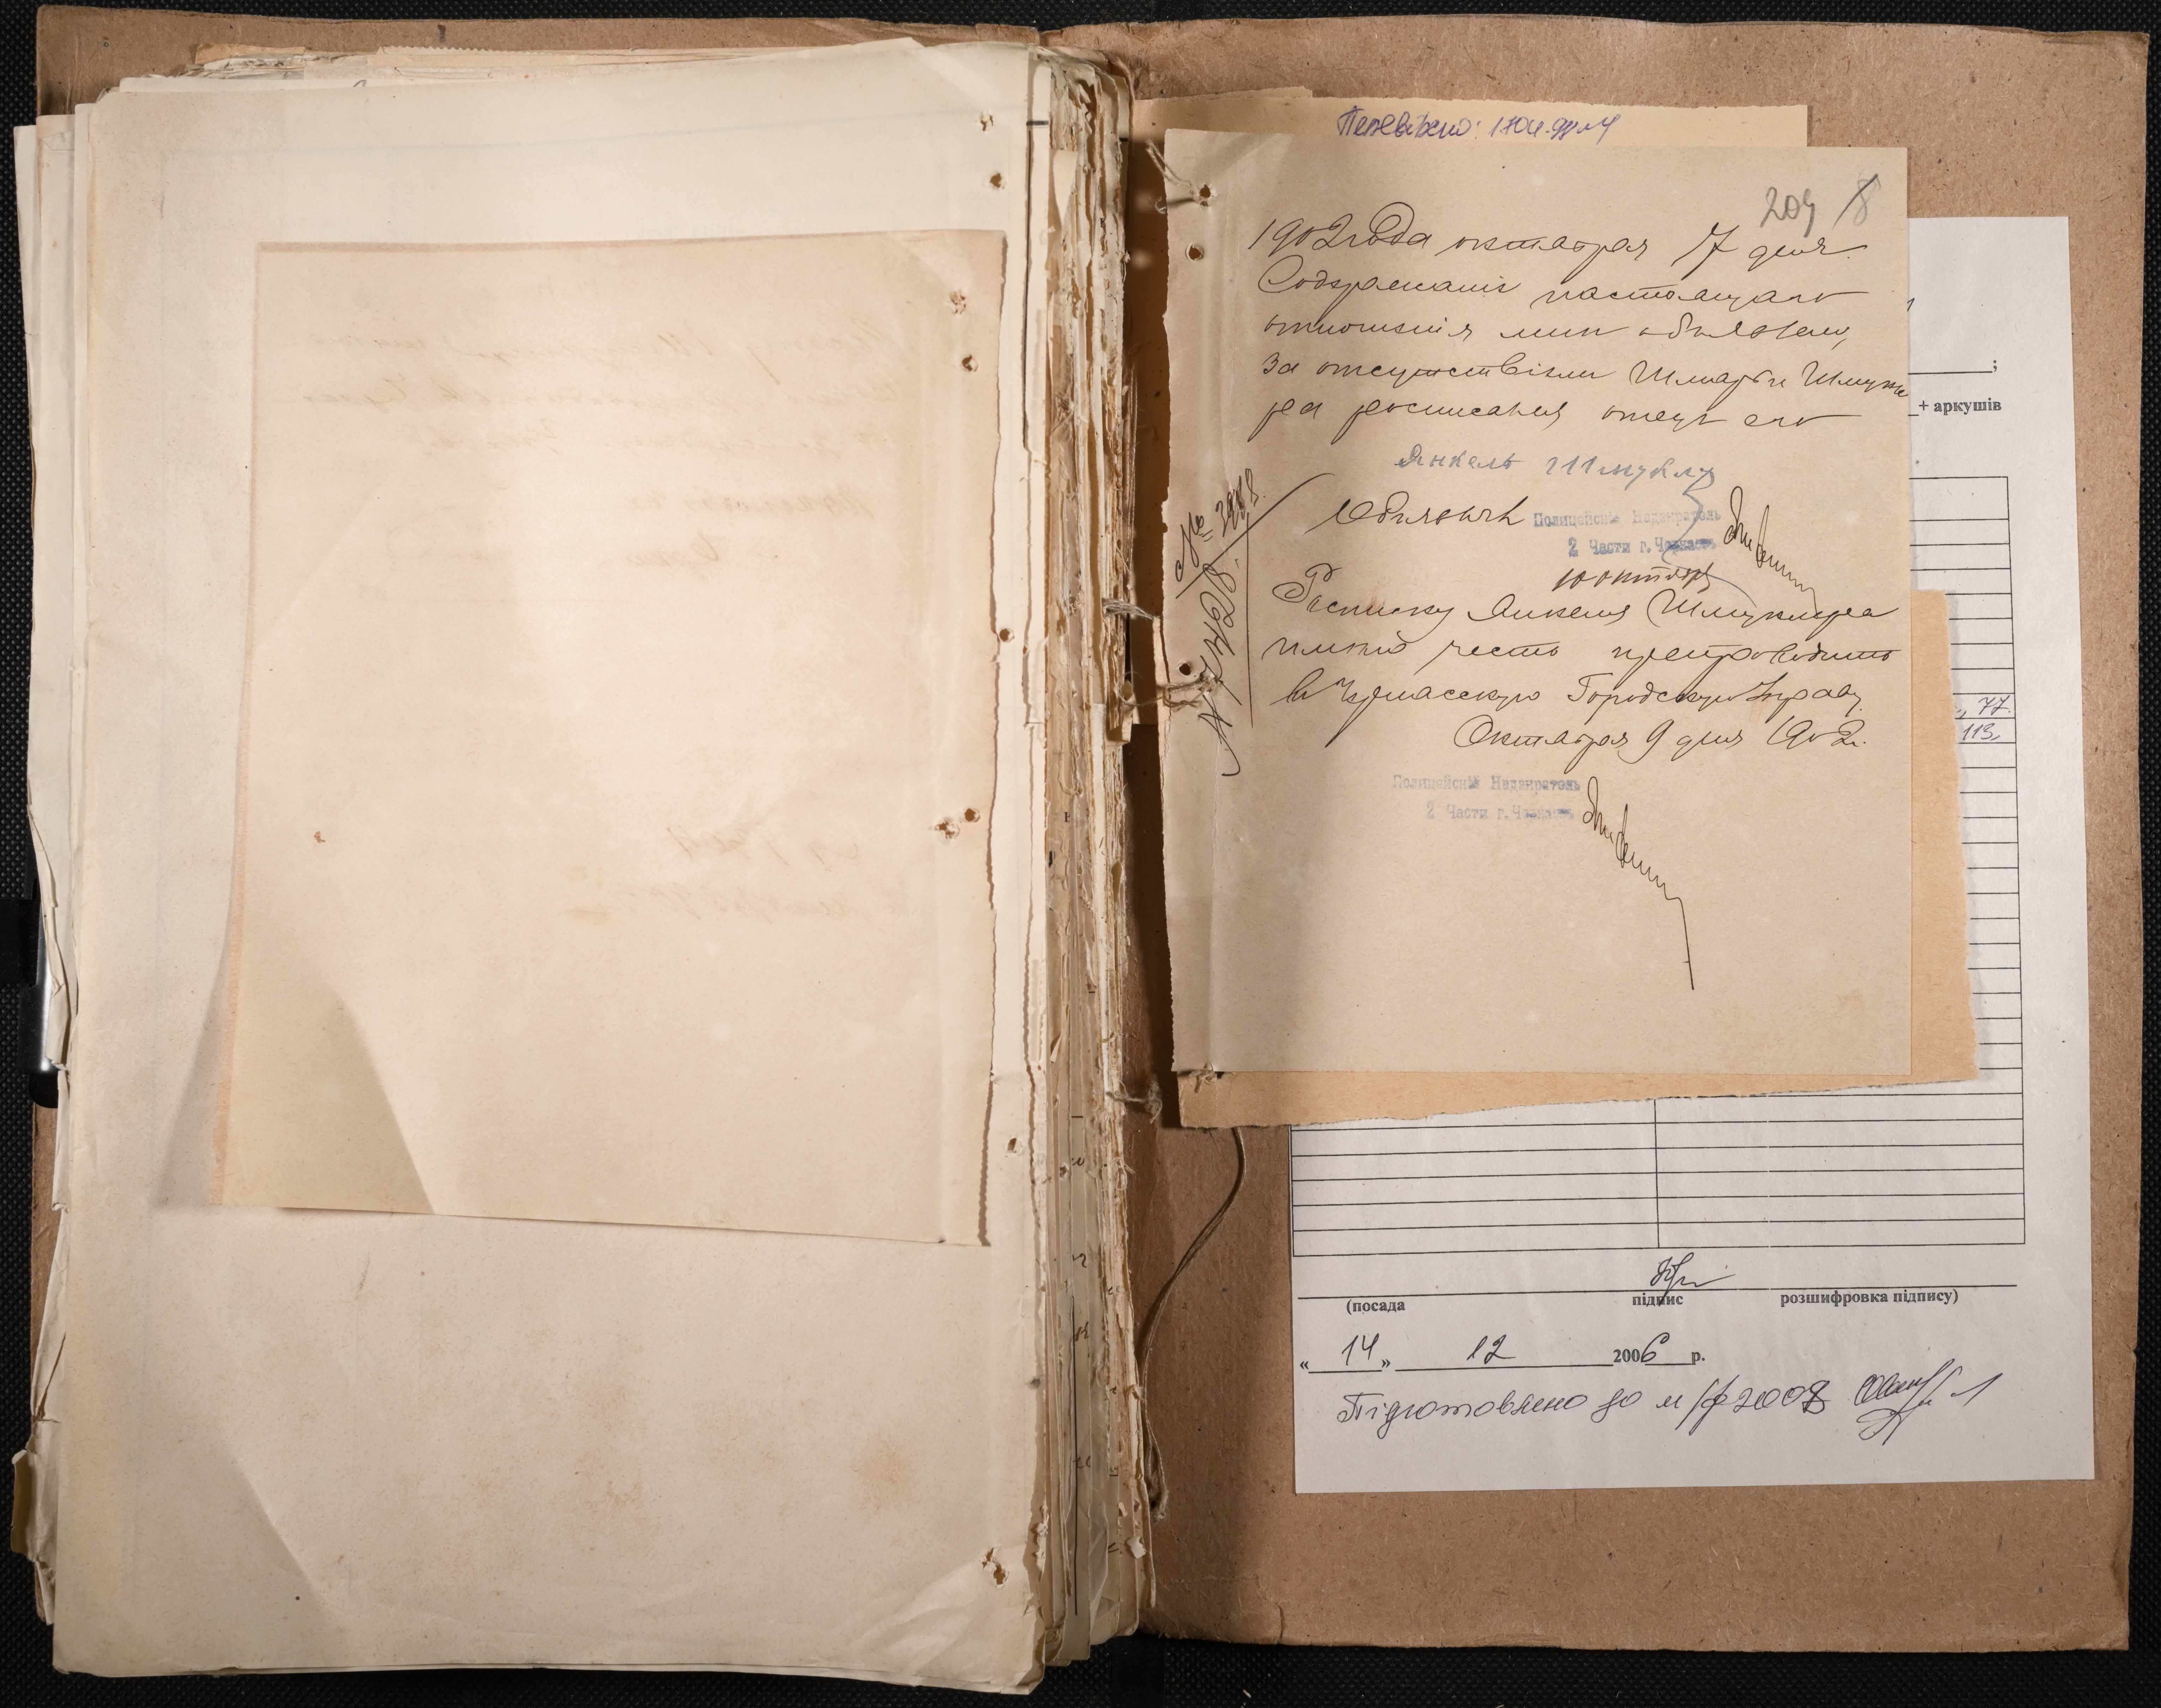 Перевірено:
209
1902 года октября 7 дня.
Содержаніе настоящаго
отношенія мнѣ объявлено,
за отсутствіемъ Шмары Шмукле
ра росписался отецъ его
Янкель Шмуклеръ
Объявилъ Полицейскій Надзиратель
2 Части г. Черкассъ
10 октября
№ 2988
Росписку Янкеля Шмуклера
имѣю честь препроводить
въ Черкасскую Городскую Управу.
Октября 9 дня 1902 г.
Полицейскій Надзиратель
2 Части г. Черкассъ
;
+ аркушів
77.
113,
(посада підпис розшифровка підпису)
« 14 » 12 2006 р.
Підготовлено до м/ф 2008